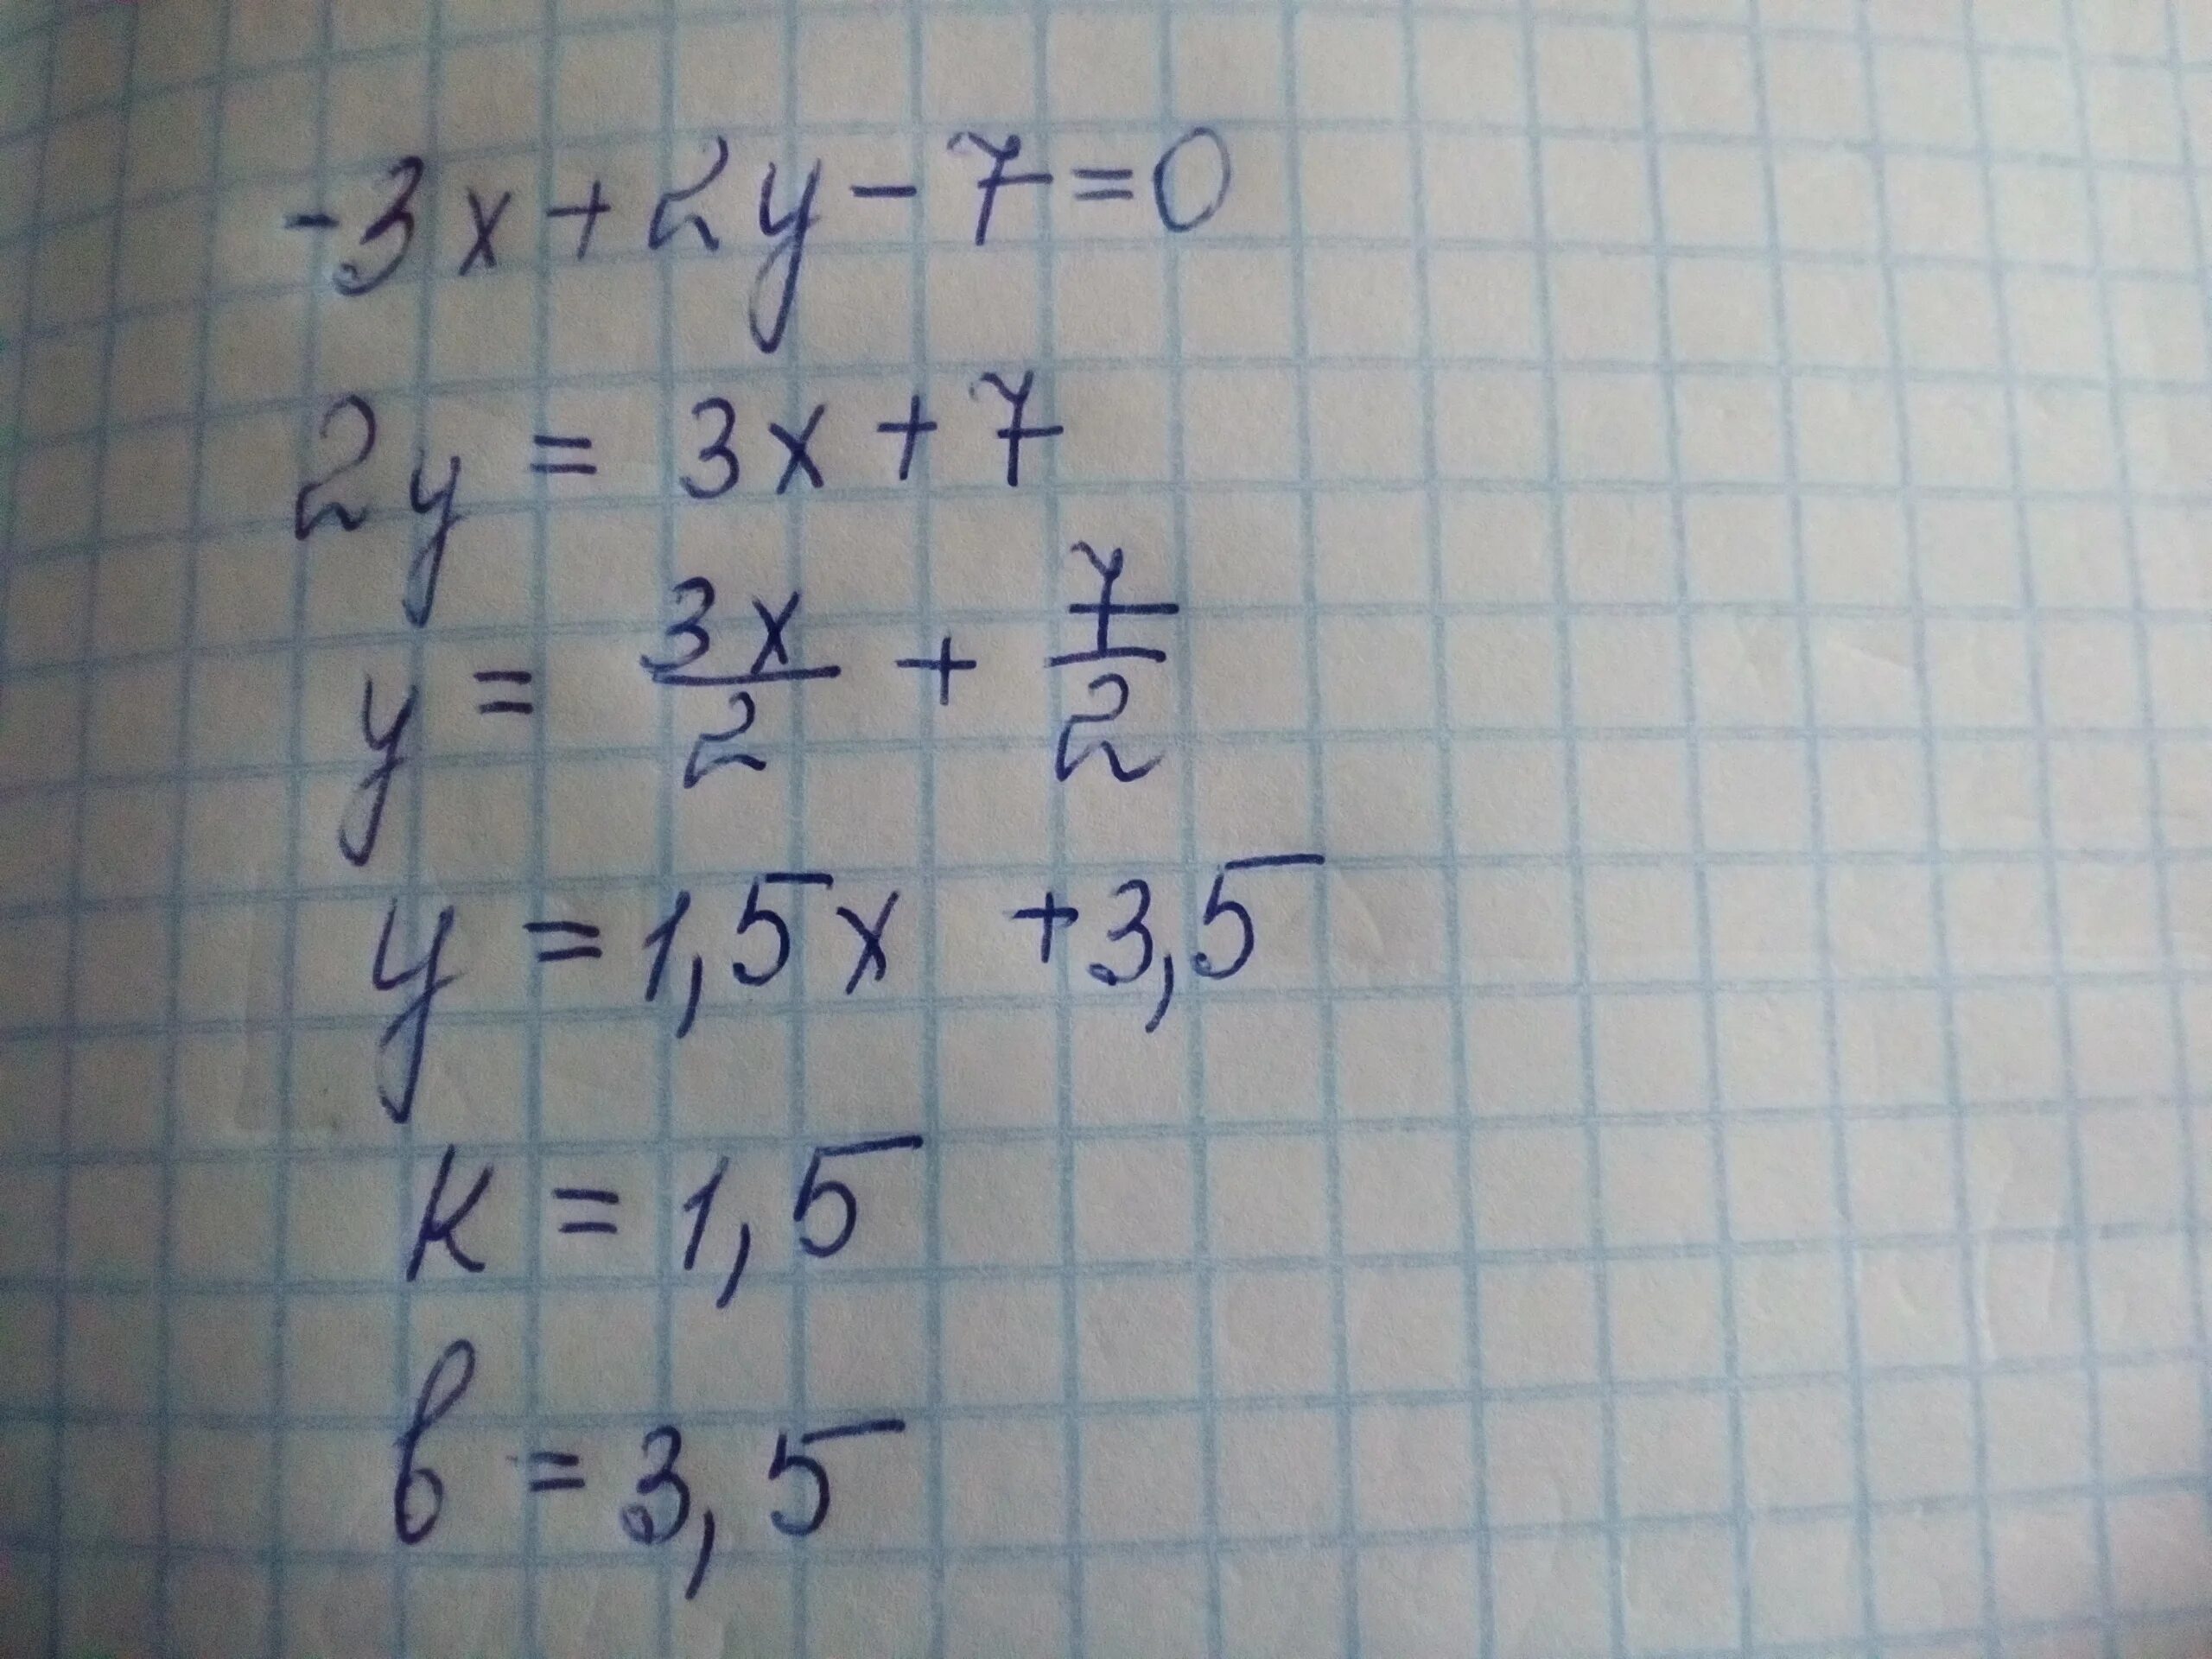 -3x+2y-7=0
2y = 3x+7
y = 3x/2 + 7/2
y = 1,5x +3,5
к = 1,5
в = 3,5